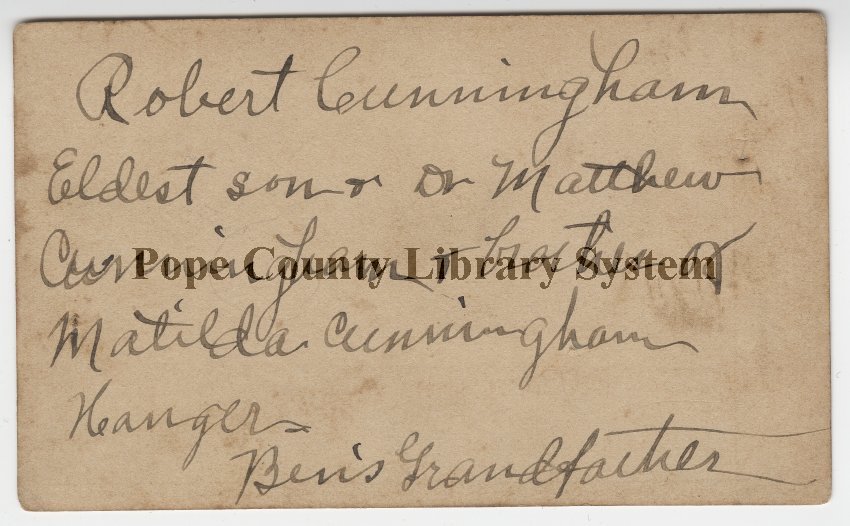 Robert Cunningham
Eldest son or Dr Matthew
Cunningham + brother of
Pope County Library System
Matilda Cunningham
Hanger
Ben's Grandfather